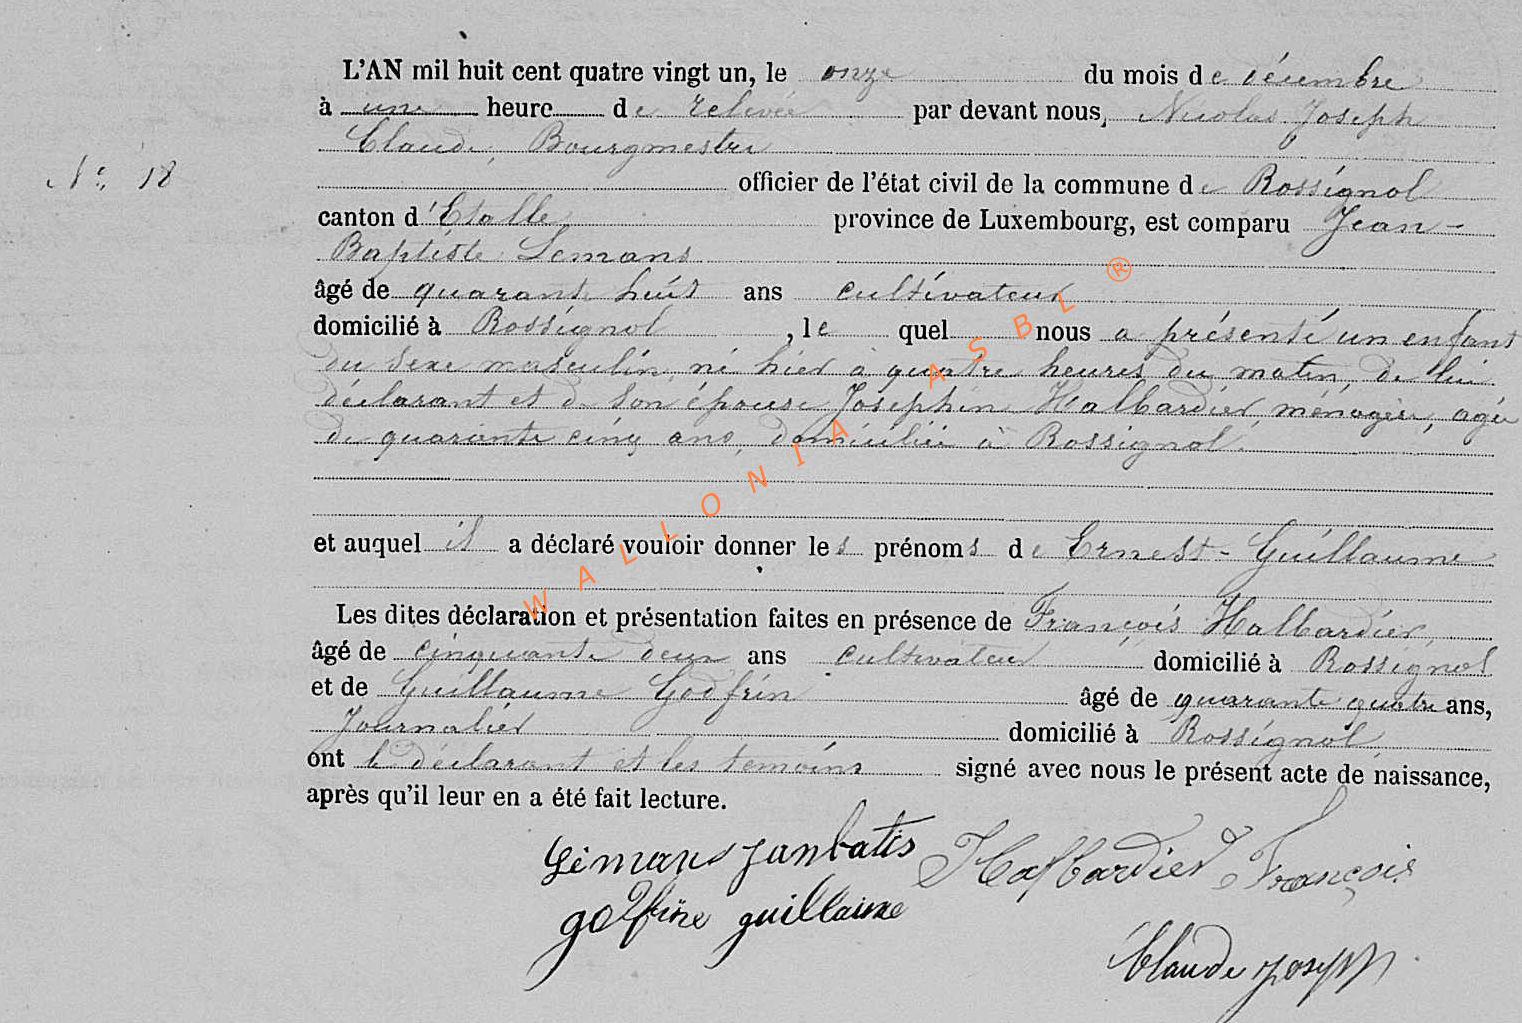 L'AN mil huit cent quatre vingt un, le onze du mois de décembre
à une heure de relevée par devant nous, Nicolas Joseph
Claude, Bourgmestre
N° 18
officier de l'état civil de la commune de Rossignol
canton d'Etalle province de Luxembourg, est comparu Jean-
Baptiste Lemans
âgé de quarante huit ans cultivateur
domicilié à Rossignol, le quel nous a présenté un enfant
du sexe masculin, né hier à quatre heures du matin, de lui
déclarant et de son épouse Joséphine Halbardier, ménagère, agée
de quarante cinq ans, domiciliée à Rossignol.
et auquel il a déclaré vouloir donner les prénoms de Ernest-Guillaume
Les dites déclaration et présentation faites en présence de François Halbardier,
âgé de cinquante deux ans cultivateur domicilié à Rossignol
et de Guillaume Godfrin âgé de quarante quatre ans,
Journalier domicilié à Rossignol,
ont le déclarant et les témoins signé avec nous le présent acte de naissance,
après qu'il leur en a été fait lecture.
Lemans Janbatis Halbardier François
godfrine guillaume
Claude Joseph
WALLONIA ASBL ®